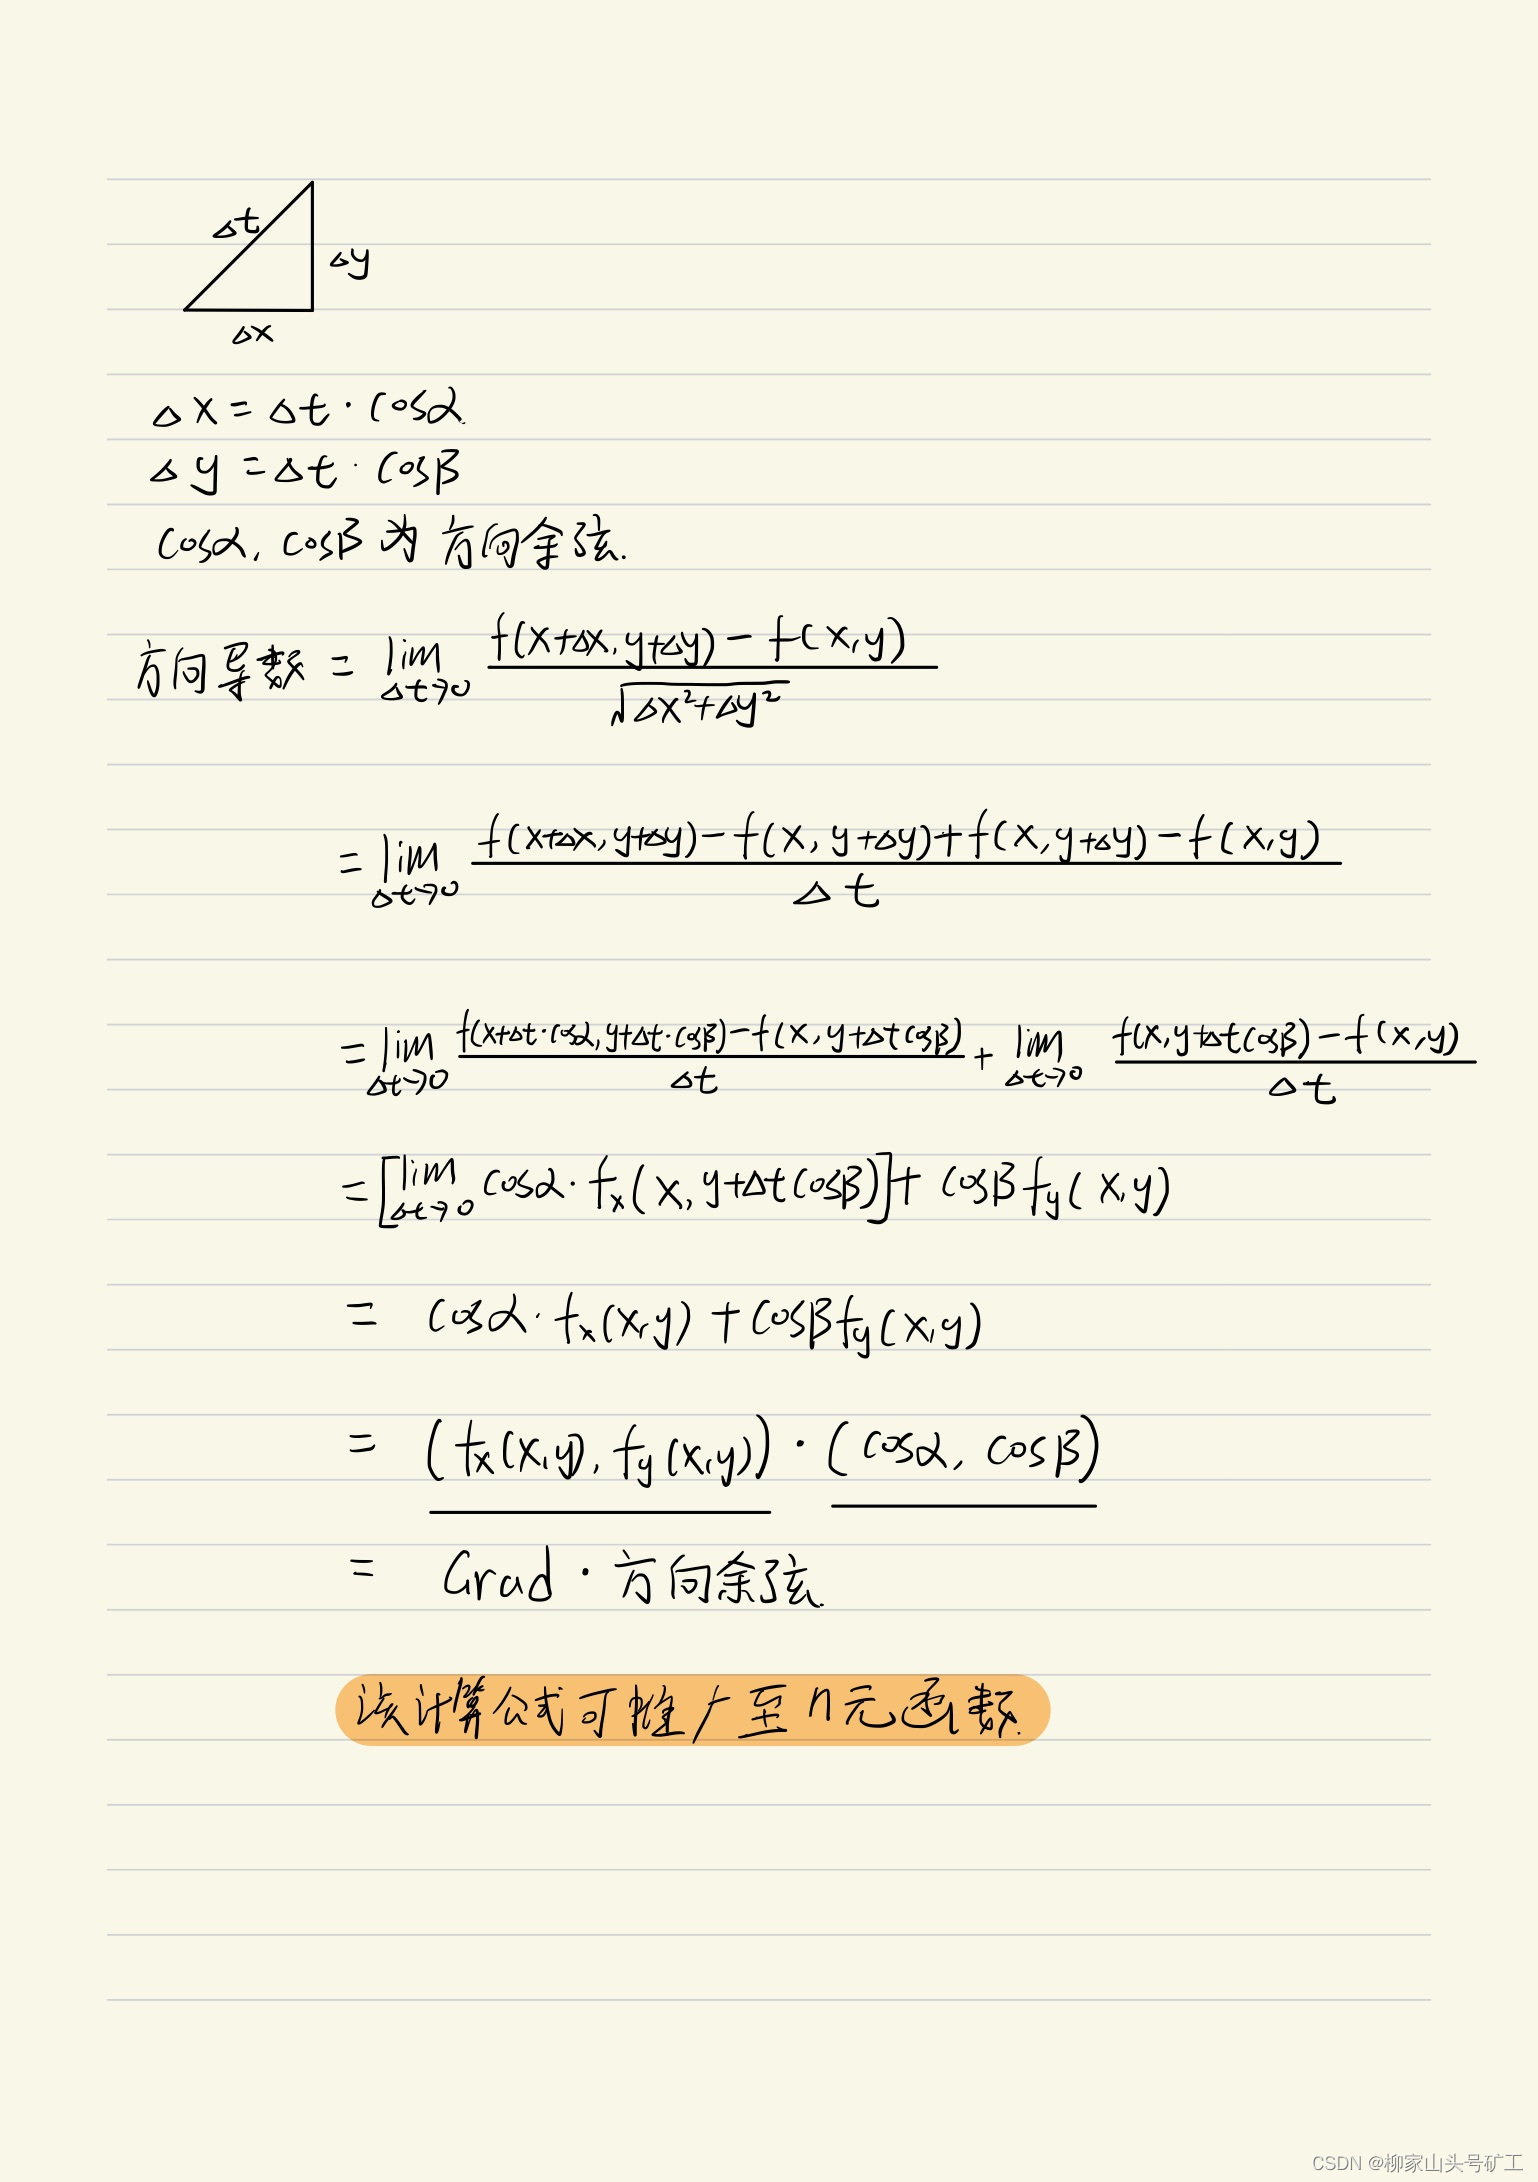 Δt
Δy
Δx
Δx = Δt · cosα
Δy = Δt · cosβ
cosα, cosβ 为 方向余弦.
方向导数 = lim_{Δt→0} \frac{f(x+Δx, y+Δy) - f(x,y)}{\sqrt{Δx²+Δy²}}
= lim_{Δt→0} \frac{f(x+Δx, y+Δy) - f(x, y+Δy) + f(x, y+Δy) - f(x,y)}{Δt}
= lim_{Δt→0} \frac{f(x+Δt·cosα, y+Δt·cosβ) - f(x, y+Δt cosβ)}{Δt} + lim_{Δt→0} \frac{f(x, y+Δt cosβ) - f(x,y)}{Δt}
= [lim_{Δt→0} cosα · f_x(x, y+Δt cosβ)] + cosβ f_y(x,y)
= cosα · f_x(x,y) + cosβ f_y(x,y)
= (f_x(x,y), f_y(x,y)) · (cosα, cosβ)
= Grad · 方向余弦.
该计算公式可推广至n元函数.
CSDN @柳家山头号矿工